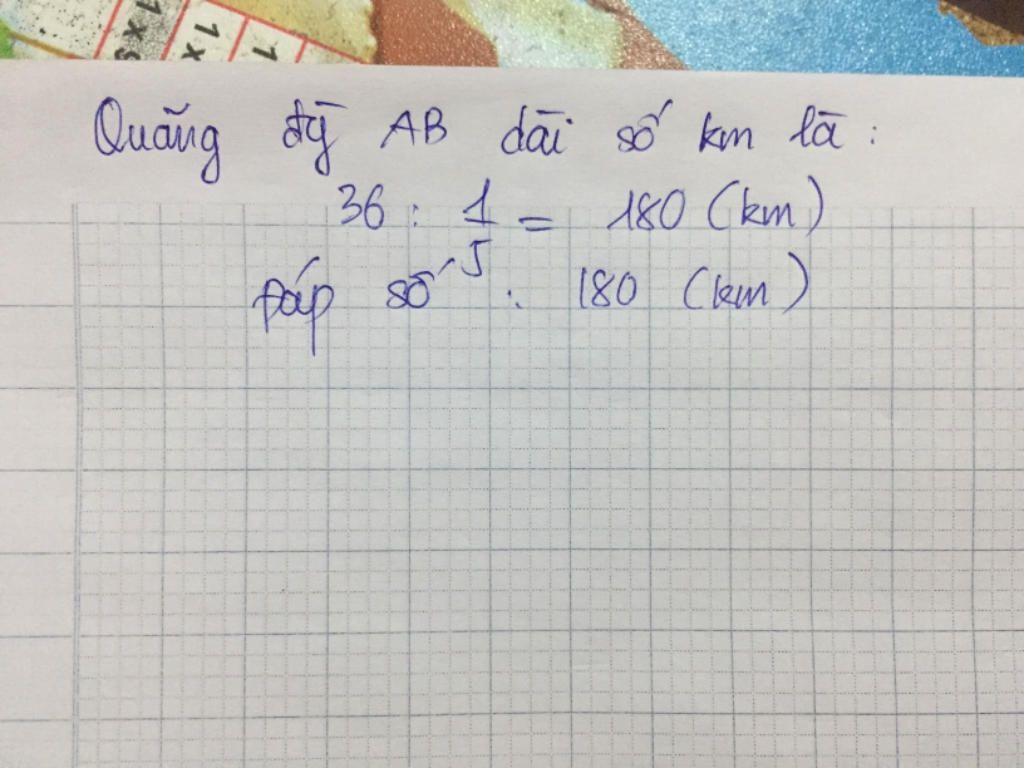 1x9 1x 1
Quãng đg̀ AB dài số km là :
36 : 1/5 = 180 (km)
Đáp số : 180 (km)